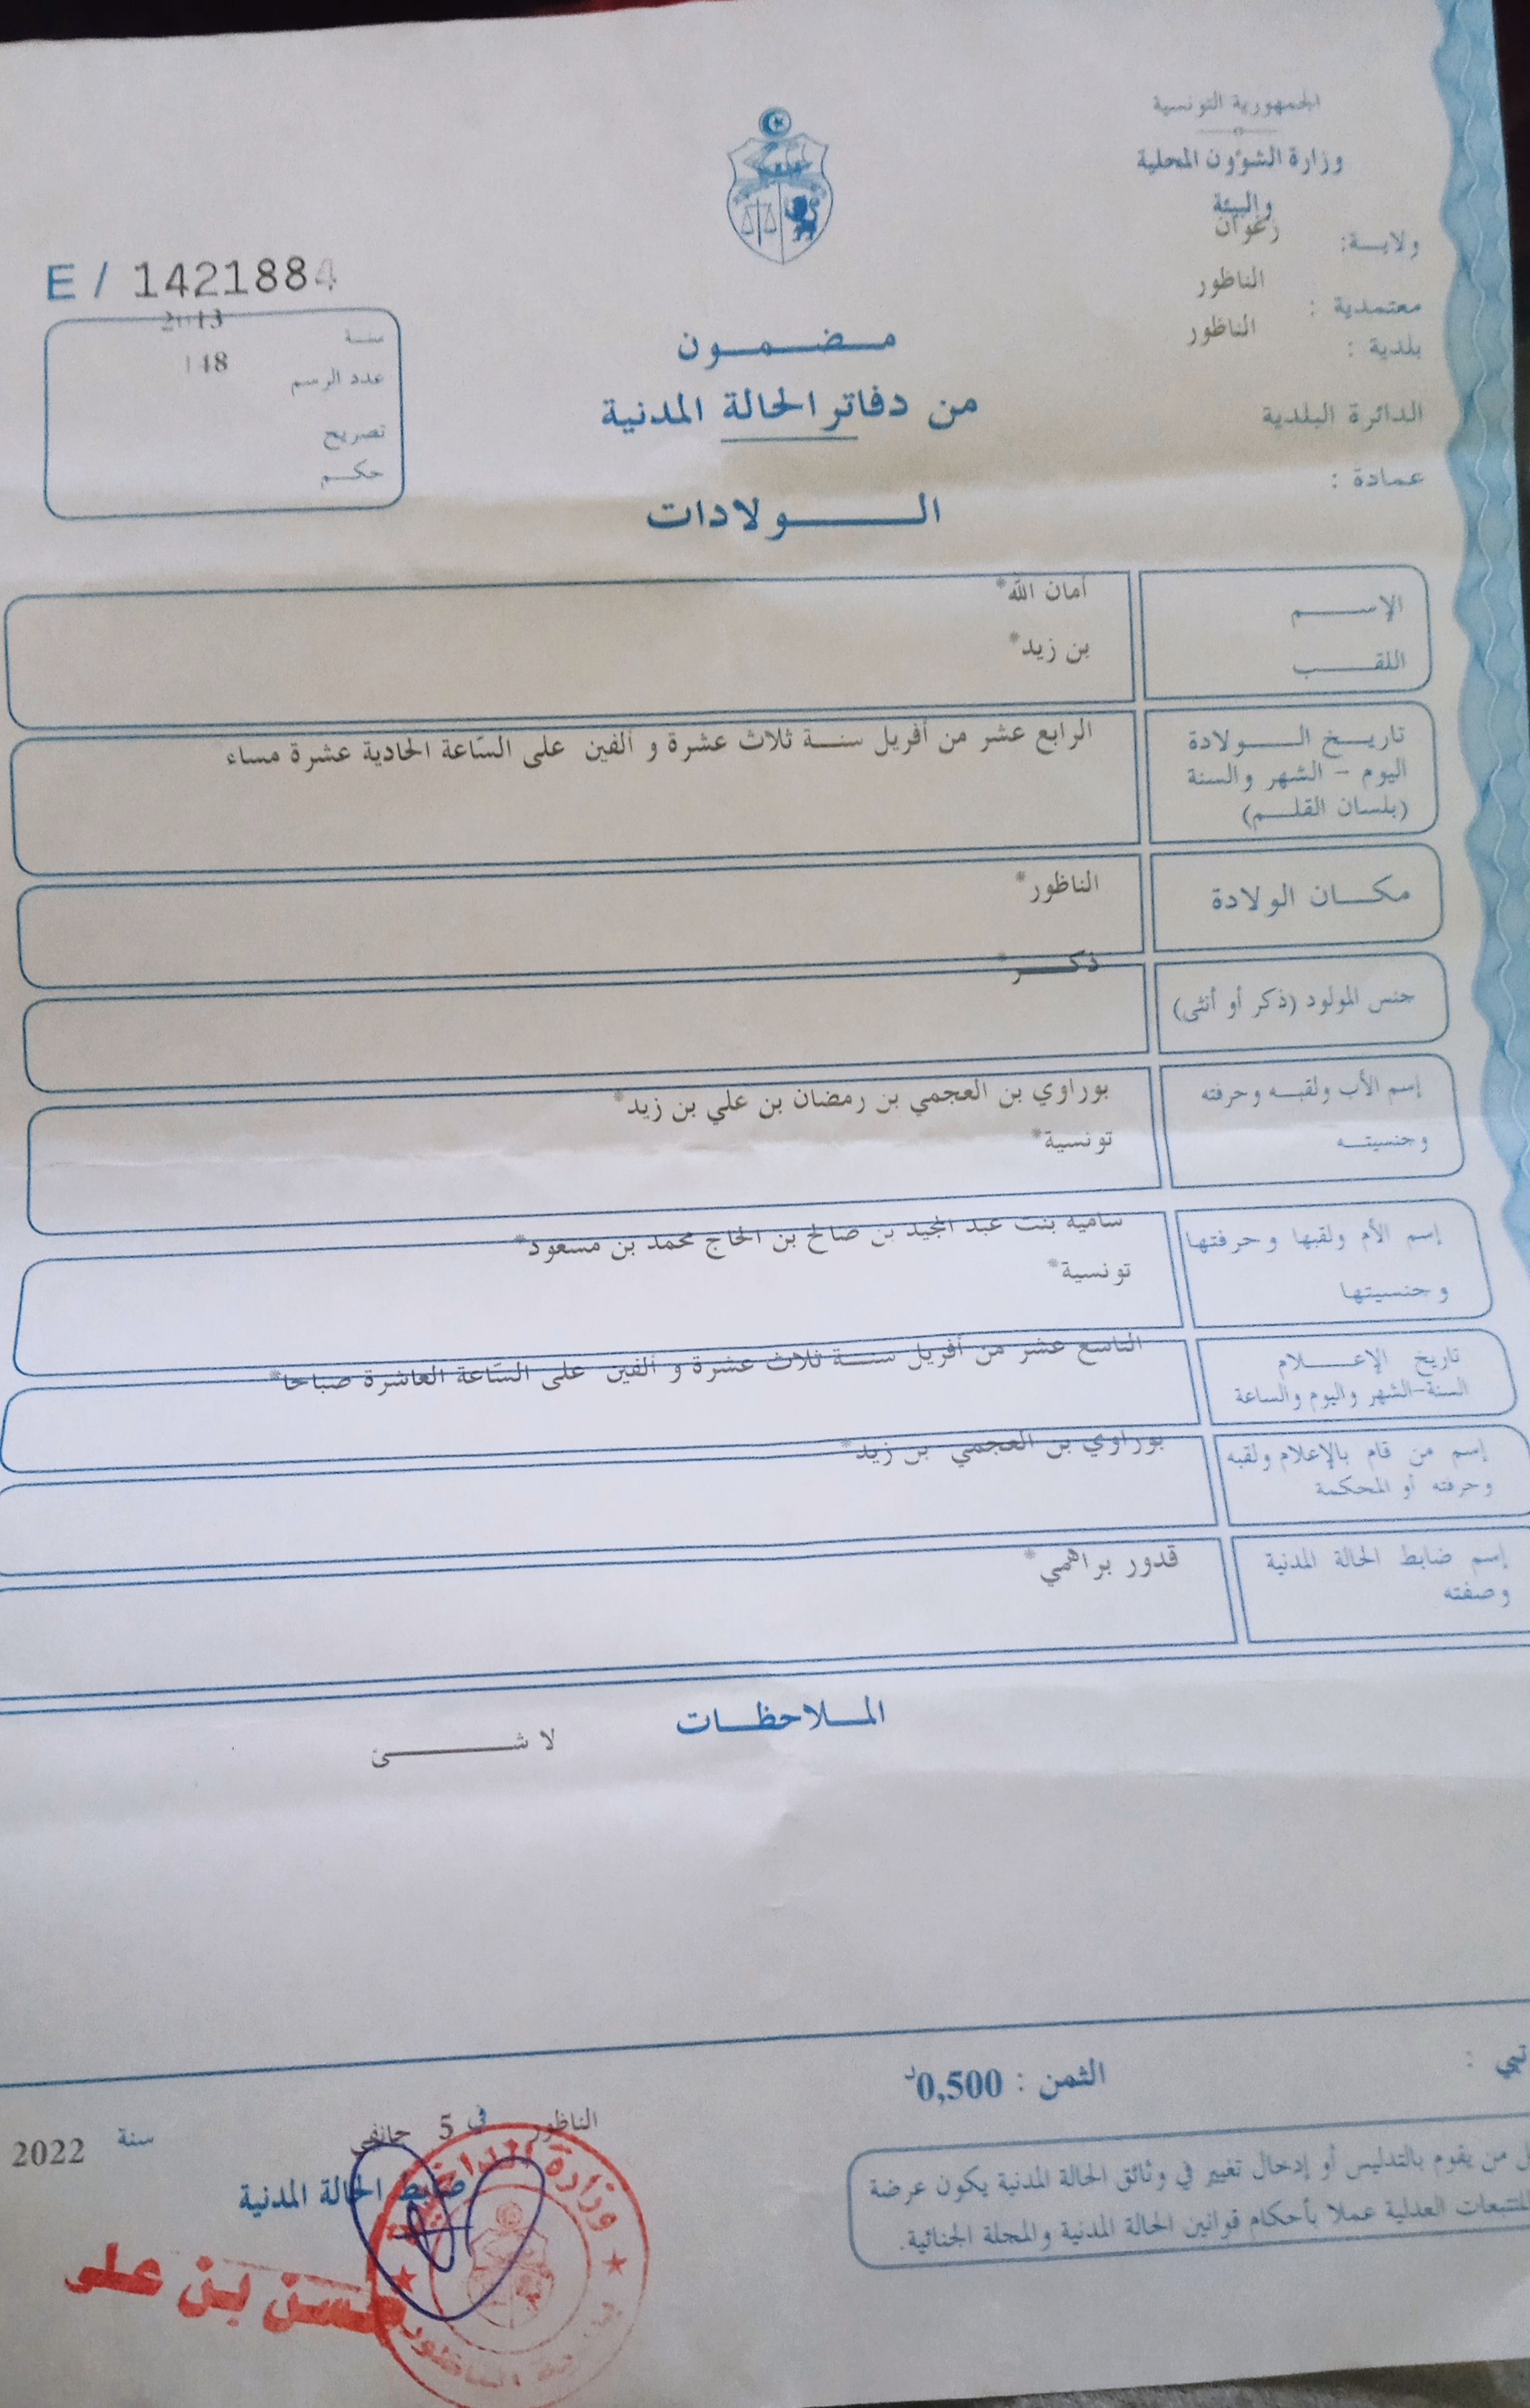 الجمهورية التونسية
وزارة الشؤون المحلية
والبيئة
ولاية: زغوان
معتمدية : الناظور
بلدية : الناظور
الدائرة البلدية
عمادة :
E / 1421884
سنة 2013
عدد الرسم 148
تصريح
حكم
مضمون
من دفاتر الحالة المدنية
الولادات
الإسم أمان الله*
اللقب بن زيد*
تاريخ الولادة الرابع عشر من أفريل سنة ثلاث عشرة و ألفين على السّاعة الحادية عشرة مساء
اليوم - الشهر والسنة
(بلسان القلم)
مكان الولادة الناظور*
جنس المولود (ذكر أو أنثى) ذكر*
إسم الأب ولقبه وحرفته بوراوي بن العجمي بن رمضان بن علي بن زيد*
وجنسيته تونسية*
إسم الأم ولقبها وحرفتها سامية بنت عبد المجيد بن صالح بن الحاج محمد بن مسعود*
وجنسيتها تونسية*
تاريخ الإعلام التاسع عشر من أفريل سنة ثلاث عشرة و ألفين على السّاعة العاشرة صباحا*
السنة-الشهر واليوم والساعة
إسم من قام بالإعلام ولقبه بوراوي بن العجمي بن زيد*
وحرفته أو المحكمة
إسم ضابط الحالة المدنية قدور براهمي*
وصفته
الملاحظات
لا شئ
الثمن : 0,500د
من يقوم بالتدليس أو إدخال تغيير في وثائق الحالة المدنية يكون عرضة
للتتبعات العدلية عملا بأحكام قوانين الحالة المدنية والمجلة الجنائية.
الناظور في 5 جانفي سنة 2022
ضابط الحالة المدنية
حسن بن علي
وزارة الداخلية
الناظور